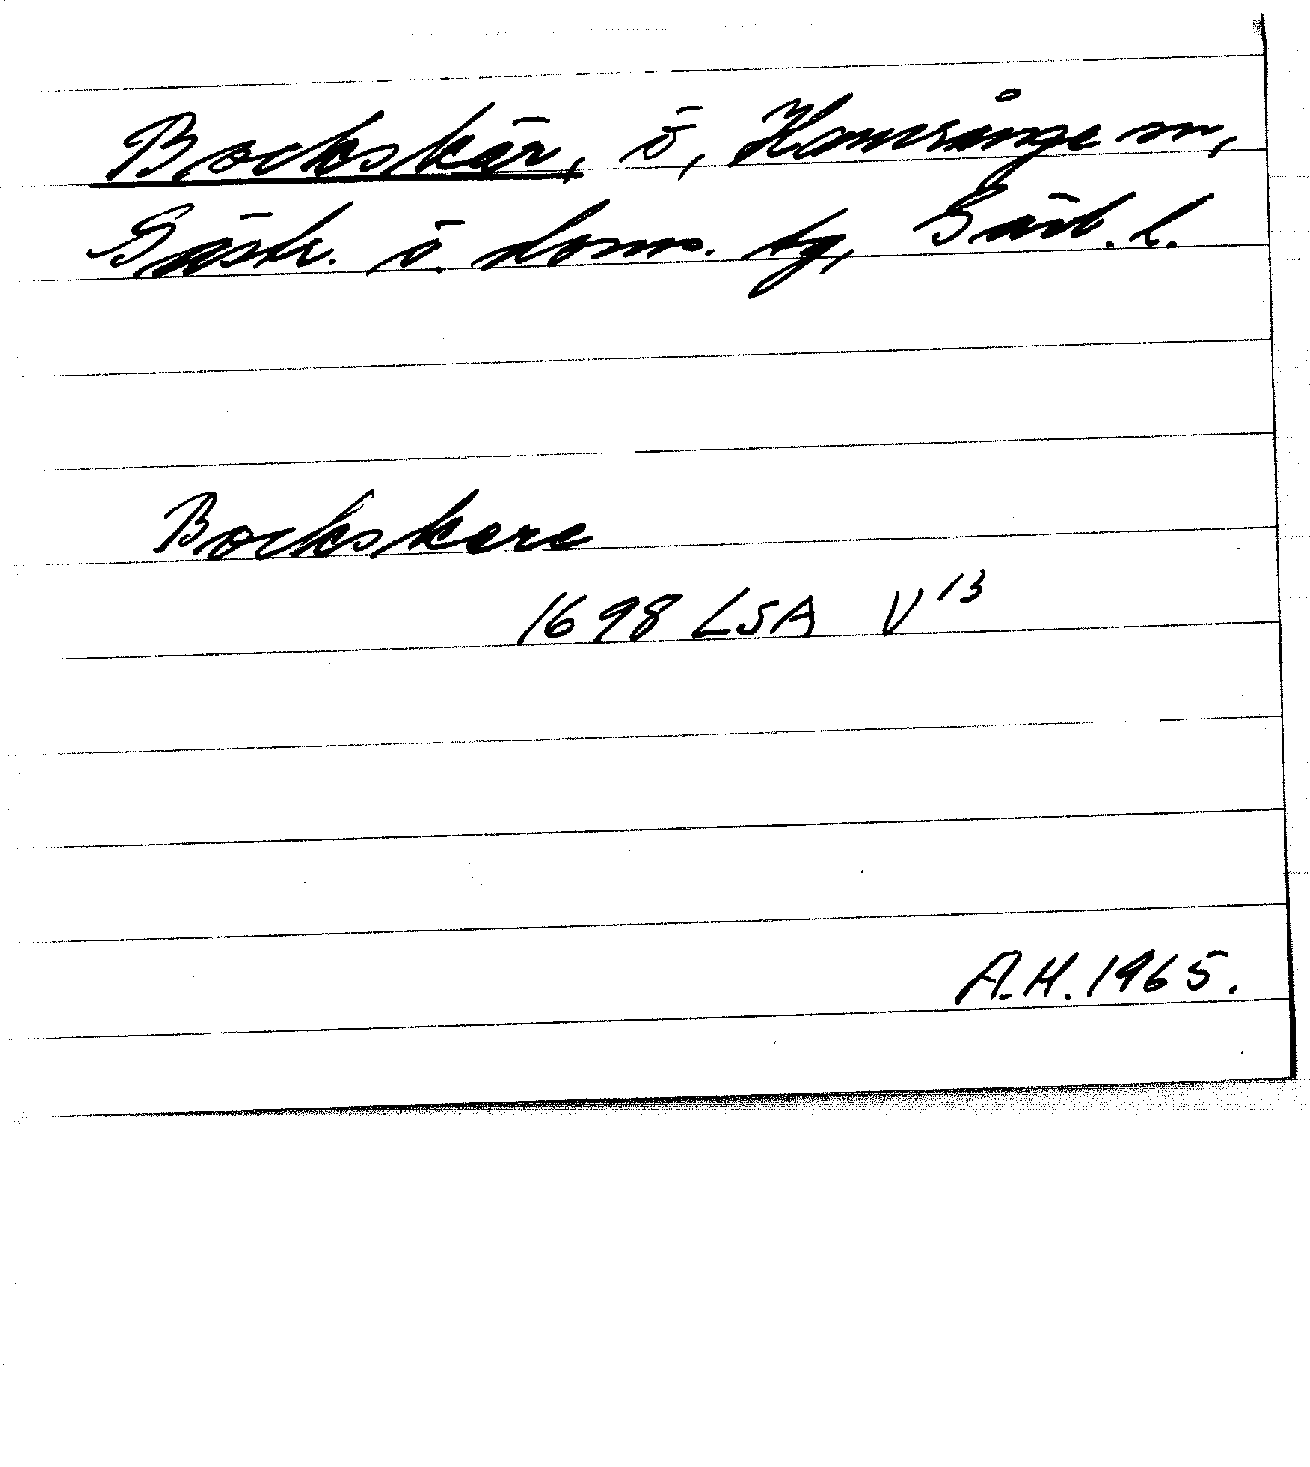 Bockskär, ö, Hamrånge sn,
Gästr. ö. doms. tg, Gävl. l.
Bockskere
1698 LSA V¹³
A.H. 1965.